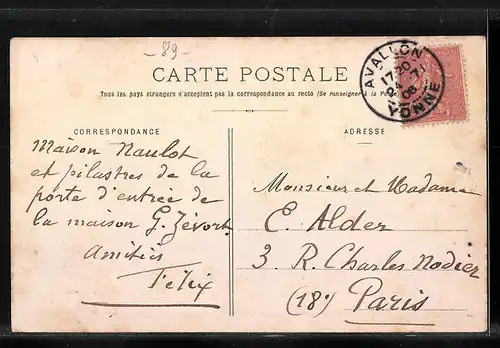 - 89 -
CARTE POSTALE
Tous les pays étrangers n'acceptent pas la correspondance au recto (Se renseigner à la Poste)
CORRESPONDANCE
Maison Naulot
et pilastres de la
porte d'entrée de
la maison G. Zévort.
Amitiés
Félix
ADRESSE
Monsieur et Madame
E. Alder
3 R. Charles Nodier
(18e)
Paris
AVALLON
17 20
24 - 7
06
YONNE